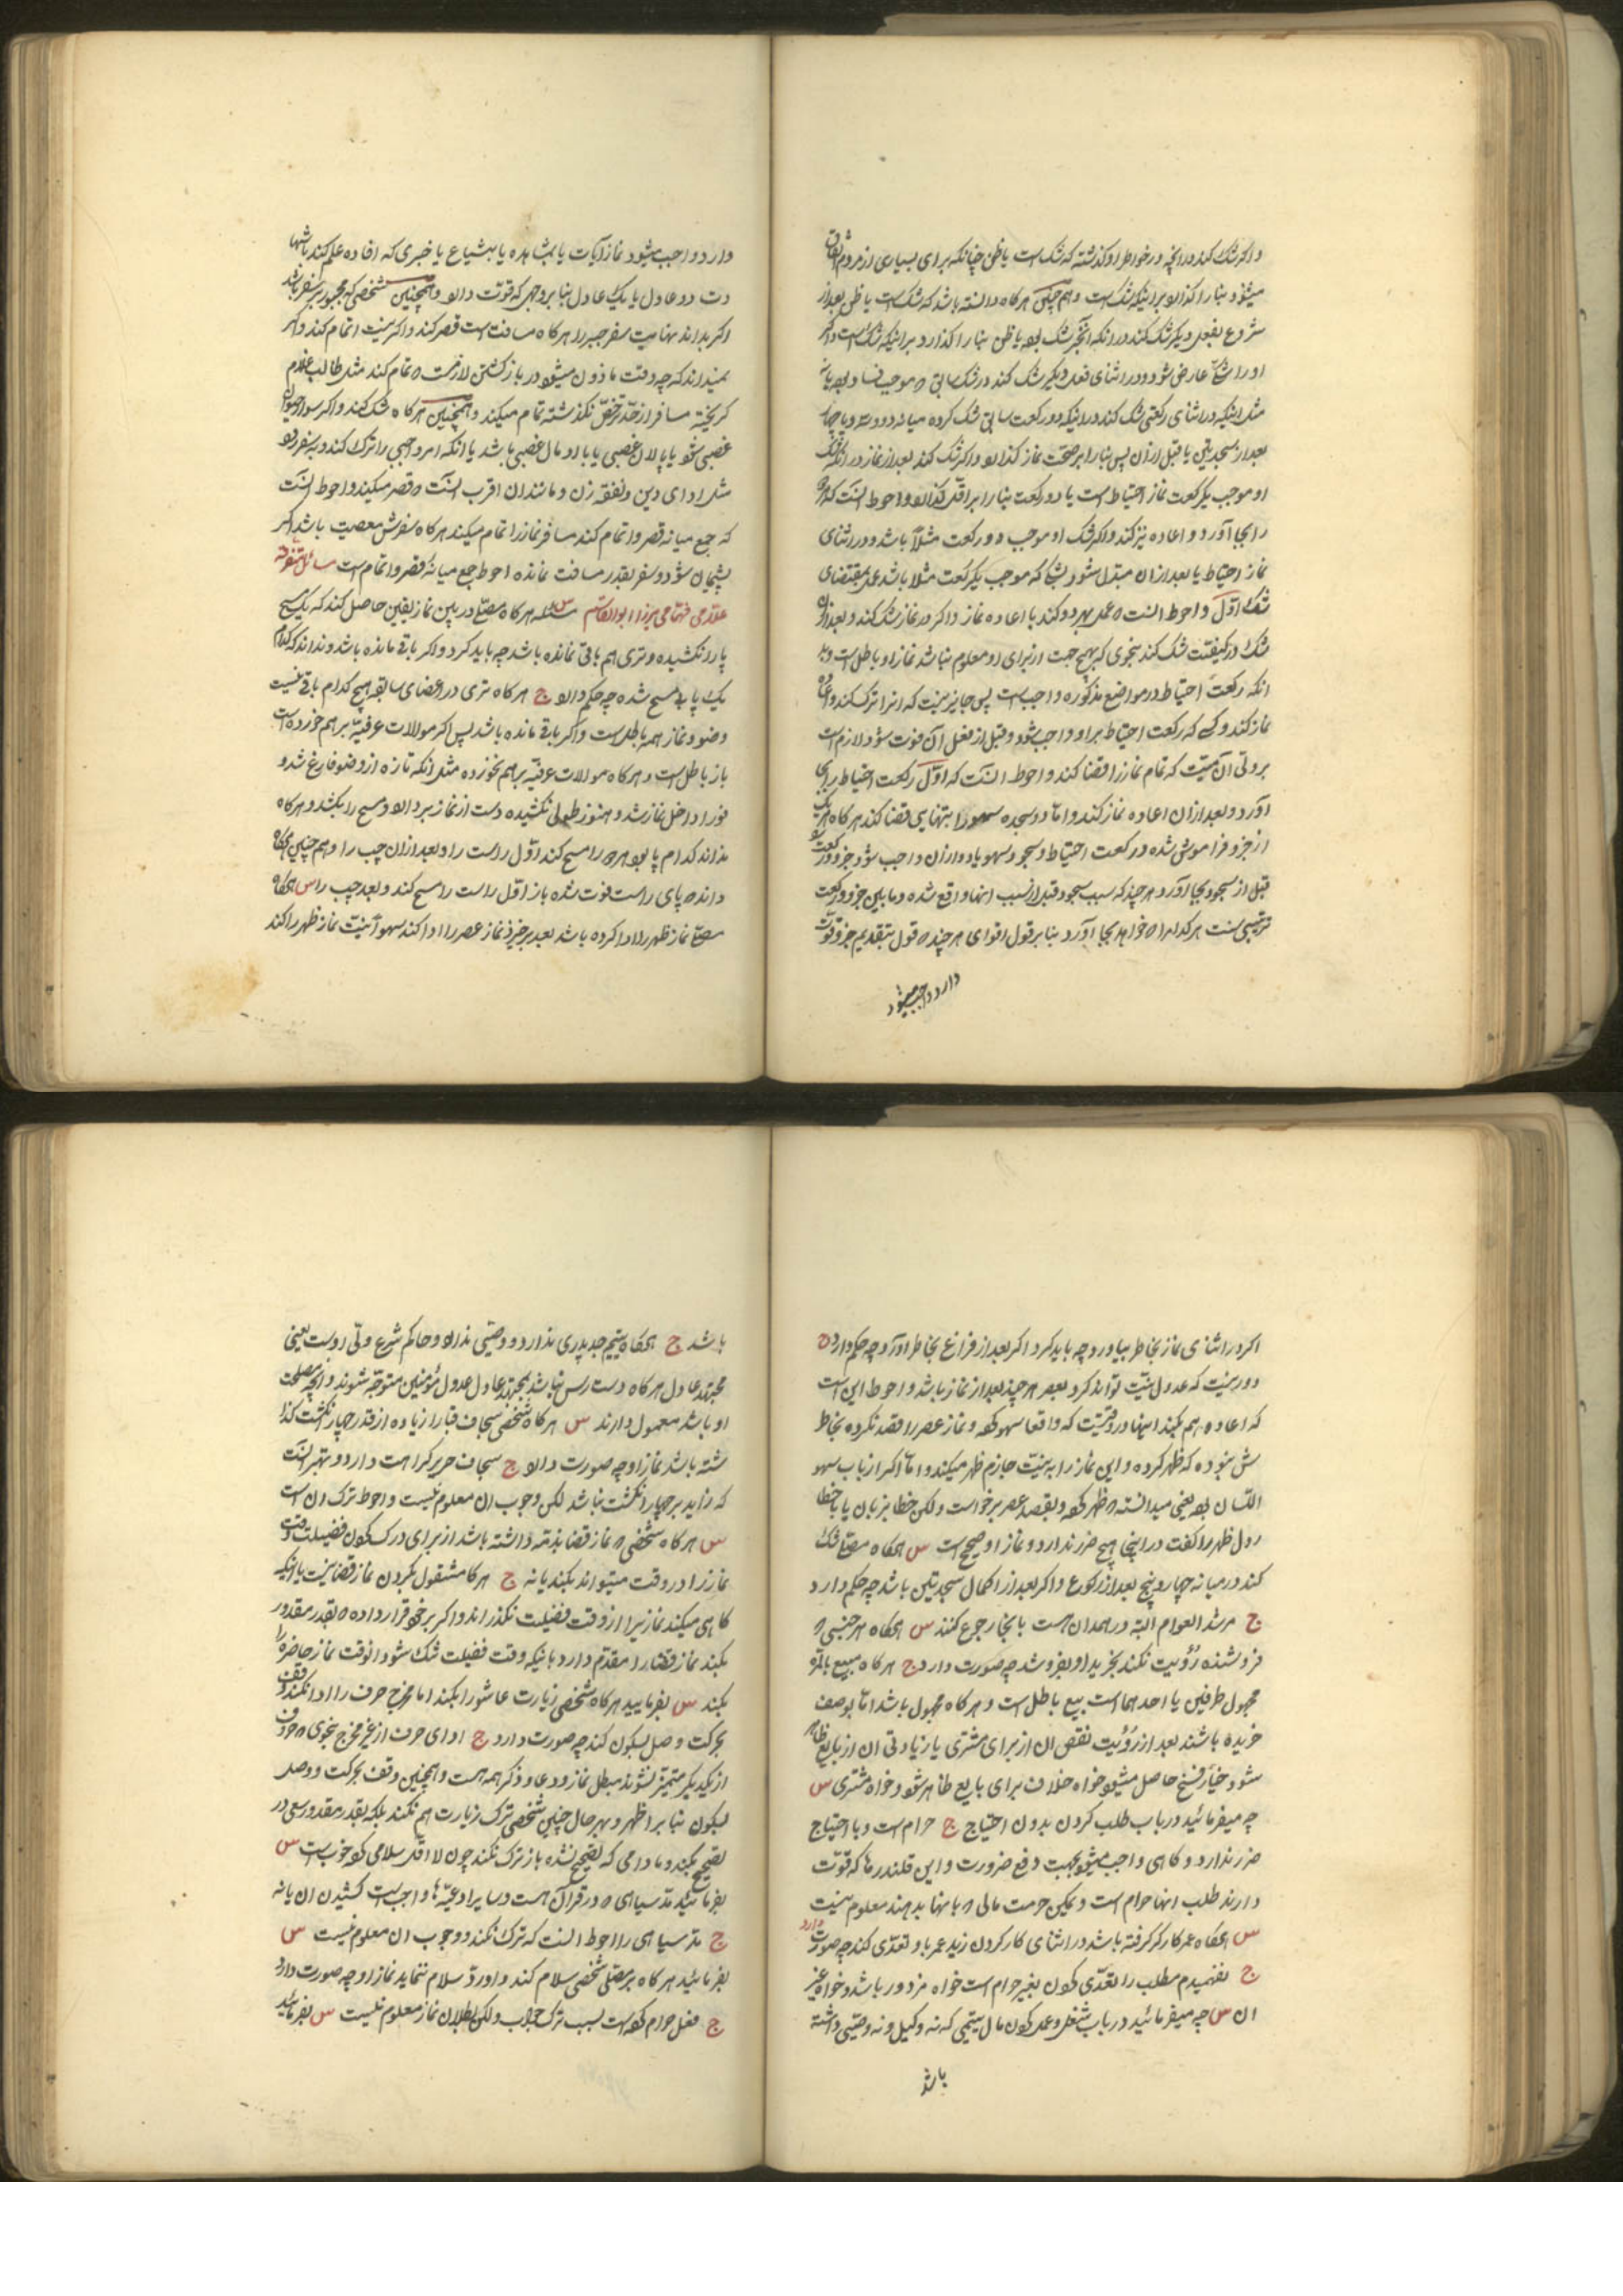 واکر شک کند در انچه در خواطر او کذشته که شک است یا ظن چنانکه برای بسیاری از مردم اتفاق
میشود بنا را کذارد بر اینکه شک است و هم چنین هرکاه دانسته باشد که شک است یا ظن بعد از
شروع بفعل دیکر شک کند در انکه آنچیز شک بود یا ظن بنا را کذارد بر اینکه شک است و اکر
او را شکی عارض شود و در اثنای فعل دیکر شک کند در شک سابق که موجب فساد بود یا نه
مثل اینکه در اثنای رکعتی شک کند در اینکه در رکعت سابق شک کرده میانه دو و سه و یا چهار
بعد از سجدتین یا قبل از ان پس بنا را بر صحت نماز کذارد و اکر شک کند بعد از نماز در انکه شک
او موجب یک رکعت نماز احتیاط است یا دو رکعت بنا را بر اقل کذارد و احوط انست که
را بجا آورد و اعاده نیز کند و اکر شک او موجب دو رکعت مثلا باشد و در اثنای
نماز احتیاط یا بعد از ان مبدل شود بشکی که موجب یک رکعت مثلا باشد عمل بمقتضای
شک اول و احوط انست که عمل بهر دو کند با اعاده نماز و اکر در نماز شک کند و بعد از ان
شک در کیفیت شک کند بنحوی که بهیچ جهت از برای او معلوم نباشد نماز او باطل است و بد
انکه رکعت احتیاط در مواضع مذکوره واجب است پس جایز نیست که انرا ترک کند و اعاده
نماز کند و کسی که رکعت احتیاط بر او واجب شود و قبل از فعل آن فوت شود لازم است
بر ولی آن میت که تمام نماز را قضا کند و احوط انست که اول رکعت احتیاط را بجا
آورد و بعد از ان اعاده نماز کند و اما دو سجده سهو را بتنهایی قضا کند هرکاه هر یک
از جزو فراموش شده و رکعت احتیاط و سجود سهو یا دو از ان واجب شود جزو و رکعت را
قبل از سجود بجا آورد هر چند که سبب سجود قبل از سبب انها واقع شده و ما بین جزو و رکعت
ترتیبی نیست هرکدام را که خواهد بجا آورد بنا بر قول اقوای هر چند که قول بتقدیم جزو قوت
دارد و واجب میشود
دارد و واجب میشود نماز آیات یا بمشاهده یا بشیاع یا خبری که افاده علم کند یا شها
دت دو عادل یا یک عادل بنا بر وجهی که قوت دارد و همچنین شخصی که مجبور بر سفر باشد
اکر بداند نهایت سفر جبر را هرکاه مسافت است قصر کند و اکر نیست اتمام کند و اکر
نمیداند که چه وقت ماذون میشود در بازکشتن لازمست که تمام کند مثل طالب غلام
کریخته مسافر از حد ترخص نکذشته تمام میکند و همچنین هرکاه شک کند و اکر سوار حیوان
غصبی شود یا پالان غصبی یا با او مال غصبی باشد یا انکه امر واجبی را ترک کند و بسفر رود
مثل ادای دین و نفقه زن و مانند ان اقرب انست که قصر میکند و احوط انست
که جمع میانه قصر و اتمام کند مسافر نماز را تمام میکند هرکاه سفرش معصیت باشد اکر
پشیمان شود و سفر بقدر مسافت نمانده احوط جمع میانه قصر و اتمام است مسائل متفرقه
علامی فهامی میرزا ابوالقاسم س مسئله هرکاه مصلی در بین نماز یقین حاصل کند که یک مسح
پا را نکشیده و تری هم باقی نمانده باشد چه باید کرد و اکر باقی مانده باشد و نداند که کدام
یک پا بی مسح شده چه حکم دارد ج هرکاه تری در اعضای سابقه هیچ کدام باقی نیست
وضو و نماز همه باطل است و اکر باقی مانده باشد پس اکر موالات عرفیه بر هم خورده است
باز باطل است و هرکاه موالات عرفیه بر هم نخورده مثل انکه تازه از وضو فارغ شد و
فورا داخل نماز شد و هنوز طولی نکشیده دست از نماز بردارد و مسح را بکشد و هرکاه
نداند کدام پا بود هر دو را مسح کند اول راست را و بعد از ان چپ را و هم چنین هرکاه
داند که پای راست فوت شده باز اول راست را مسح کند و بعد چپ را س هرکاه
مصلی نماز ظهر را ادا کرده باشد بعد برخیزد نماز عصر را ادا کند سهوا نیت نماز ظهر را کند
اکر در اثنای نماز بخاطر بیاورد چه باید کرد و اکر بعد از فراغ بخاطر آورد چه حکم دارد ج
دور نیست که عدول نیت تواند کرد بعصر هر چند بعد از نماز باشد و احوط این است
که اعاده هم بکند اینها در وقتیست که واقعا سهو کرده و نماز عصر را قصد نکرده بخاطر
ش نبوده که ظهر کرده و این نماز را به نیت جازم ظهر میکند و اما اکر از باب سهو
اللسان بود یعنی میدانسته که ظهر کرده و بقصد عصر برخواست و لکن خطا بزبان یا بخطا
دول ظهر را کفت در اینجا هیچ ضرر ندارد و نماز او صحیح است س هرکاه مصلی شک
کند در میانه چهار و پنج بعد از رکوع و اکر بعد از اکمال سجدتین باشد چه حکم دارد
ج مرشد العوام البته در همدان هست بانجا رجوع کنند س هرکاه هر جنسی که
فروشنده رؤیت نکند بخرید او بفروشد چه صورت دارد ج هرکاه مبیع بالمره
مجهول طرفین یا احدهما است بیع باطل است و هرکاه مجهول باشد اما بوصف
خریده باشند بعد از رؤیت نقص ان از برای مشتری یا زیادتی ان از بایع ظاهر
شود خیار فسخ حاصل میشود خواه خلاف برای بایع ظاهر شود و خواه مشتری س
چه میفرمائید در باب طلب کردن بدون احتیاج ج حرام است و با احتیاج
ضرر ندارد و کاهی واجب میشود بجهت دفع ضرورت و این قلندرها که قوت
دارند طلب انها حرام است و لیکن حرمت مالی که بانها بدهند معلوم نیست
س هرکاه عمر کارکر کرفته باشد در اثنای کار کردن زید عمر با و تعدی کند چه صورت دارد
ج نفهمیدم مطلب را تعدی کردن بغیر حرام است خواه مزدور باشد و خواه غیر
ان س چه میفرمائید در باب شغل و عمل کردن مال یتیمی که نه وکیل و نه وصیی داشته
باشد
باشد ج هرکاه یتیم جد پدری ندارد و وصیی ندارد و حاکم شرع ولی اوست یعنی
مجتهد عادل هرکاه دست رس نباشد بمجتهد عادل عدول مؤمنین متوجه شوند و انچه مصلحت
او باشد معمول دارند س هرکاه شخصی سجاف قبا را زیاده از قدر چهار انکشت کذا
شته باشد نماز او چه صورت دارد ج سجاف حریر کراهت دارد و بهتر انست
که زاید بر چهار انکشت نباشد لکن وجوب ان معلوم نیست و احوط ترک ان است
س هرکاه شخصی که نماز قضا بذمه داشته باشد از برای درک کردن فضیلت وقت
نماز را در وقت میتواند بکند یا نه ج هرکا مشقول بکردن نماز قضا نیست یا اینکه
کاهی میکند نماز نیرا از وقت فضیلت نکذراند و اکر بر خود قرار داده که بقدر مقدور
بکند نماز قضا را مقدم دارد تا اینکه وقت فضیلت تنک شود انوقت نماز حاضره را
بکند س بفرمایید هرکاه شخصی زیارت عاشورا بکند اما مخرج حرف را ادا نکند و وقف
بحرکت و وصل بسکون کند چه صورت دارد ج ادای حرف از غیر مخرج بنحوی که حروف
از یکدیکر متمیز نشوند مبطل نماز و دعا و ذکر همه هست و همچنین وقف بحرکت و وصل
بسکون بنا بر اظهر و بهر حال چنین شخصی ترک زیارت هم نکند بلکه بقدر مقدور سعی در
تصحیح بکند و مادامی که تصحیح نشده باز ترک نکند چون لا اقل سلامی کرده خوب است س
بفرمائید مد سیاهی که در قرآن هست و سایر ادعیه ها واجب است کشیدن ان یا نه
ج مد سیاهی را احوط انست که ترک نکند و وجوب ان معلوم نیست س
بفرمائید هرکاه بر مصلی شخصی سلام کند و او رد سلام ننماید نماز او چه صورت دارد
ج فعل حرام کرده است بسبب ترک جواب و لکن بطلان نماز معلوم نیست س بفرمائید